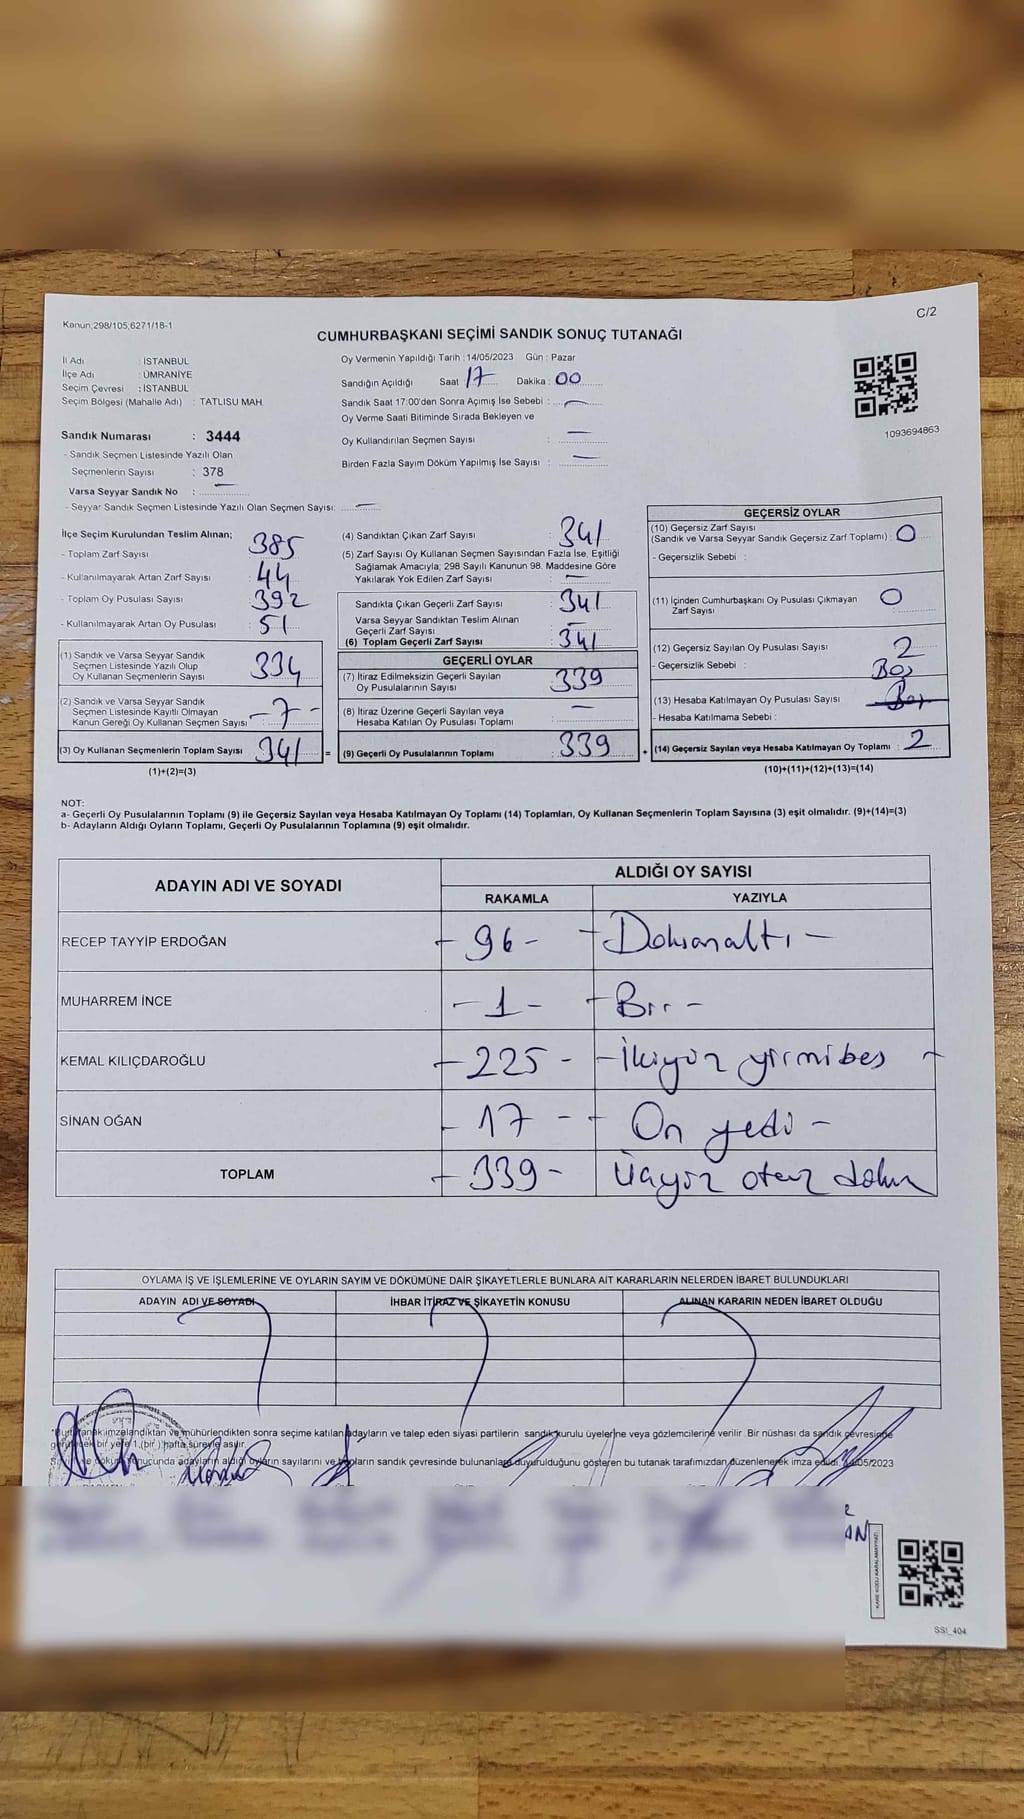 Kanun;298/105,6271/18-1
C/2
CUMHURBAŞKANI SEÇİMİ SANDIK SONUÇ TUTANAĞI
İl Adı : İSTANBUL
İlçe Adı : ÜMRANİYE
Seçim Çevresi : İSTANBUL
Seçim Bölgesi (Mahalle Adı) : TATLISU MAH.
Sandık Numarası : 3444
- Sandık Seçmen Listesinde Yazılı Olan
Seçmenlerin Sayısı : 378
Varsa Seyyar Sandık No : —
- Seyyar Sandık Seçmen Listesinde Yazılı Olan Seçmen Sayısı: —
Oy Vermenin Yapıldığı Tarih : 14/05/2023 Gün : Pazar
Sandığın Açıldığı Saat 17 Dakika : 00
Sandık Saat 17:00'den Sonra Açımış İse Sebebi : —
Oy Verme Saati Bitiminde Sırada Bekleyen ve
Oy Kullandırılan Seçmen Sayısı : —
Birden Fazla Sayım Döküm Yapılmış İse Sayısı : —
1093694863
İlçe Seçim Kurulundan Teslim Alınan;
- Toplam Zarf Sayısı 385
- Kullanılmayarak Artan Zarf Sayısı 44
- Toplam Oy Pusulası Sayısı 392
- Kullanılmayarak Artan Oy Pusulası 51
(1) Sandık ve Varsa Seyyar Sandık
Seçmen Listesinde Yazılı Olup
Oy Kullanan Seçmenlerin Sayısı 334
(2) Sandık ve Varsa Seyyar Sandık
Seçmen Listesinde Kayıtlı Olmayan
Kanun Gereği Oy Kullanan Seçmen Sayısı -7-
(3) Oy Kullanan Seçmenlerin Toplam Sayısı 341 =
(1)+(2)=(3)
(4) Sandıktan Çıkan Zarf Sayısı : 341
(5) Zarf Sayısı Oy Kullanan Seçmen Sayısından Fazla İse, Eşitliği
Sağlamak Amacıyla; 298 Sayılı Kanunun 98. Maddesine Göre
Yakılarak Yok Edilen Zarf Sayısı : —
Sandıkta Çıkan Geçerli Zarf Sayısı : 341
Varsa Seyyar Sandıktan Teslim Alınan
Geçerli Zarf Sayısı : —
(6) Toplam Geçerli Zarf Sayısı : 341
GEÇERLİ OYLAR
(7) İtiraz Edilmeksizin Geçerli Sayılan
Oy Pusulalarının Sayısı : 339
(8) İtiraz Üzerine Geçerli Sayılan veya
Hesaba Katılan Oy Pusulası Toplamı : —
(9) Geçerli Oy Pusulalarının Toplamı : 339 +
GEÇERSİZ OYLAR
(10) Geçersiz Zarf Sayısı
(Sandık ve Varsa Seyyar Sandık Geçersiz Zarf Toplamı) : 0
- Geçersizlik Sebebi :
(11) İçinden Cumhurbaşkanı Oy Pusulası Çıkmayan
Zarf Sayısı : 0
(12) Geçersiz Sayılan Oy Pusulası Sayısı : 2
- Geçersizlik Sebebi : Boş
(13) Hesaba Katılmayan Oy Pusulası Sayısı : Boş
- Hesaba Katılmama Sebebi :
(14) Geçersiz Sayılan veya Hesaba Katılmayan Oy Toplamı : 2
(10)+(11)+(12)+(13)=(14)
NOT:
a- Geçerli Oy Pusulalarının Toplamı (9) ile Geçersiz Sayılan veya Hesaba Katılmayan Oy Toplamı (14) Toplamları, Oy Kullanan Seçmenlerin Toplam Sayısına (3) eşit olmalıdır. (9)+(14)=(3)
b- Adayların Aldığı Oyların Toplamı, Geçerli Oy Pusulalarının Toplamına (9) eşit olmalıdır.
ADAYIN ADI VE SOYADI
ALDIĞI OY SAYISI
RAKAMLA YAZIYLA
RECEP TAYYİP ERDOĞAN -96- -Doksanaltı-
MUHARREM İNCE -1- -Bir-
KEMAL KILIÇDAROĞLU -225- -İkiyüz yirmibeş-
SİNAN OĞAN -17- -On yedi-
TOPLAM -339- Üçyüz otuz dokuz
OYLAMA İŞ VE İŞLEMLERİNE VE OYLARIN SAYIM VE DÖKÜMÜNE DAİR ŞİKAYETLERLE BUNLARA AİT KARARLARIN NELERDEN İBARET BULUNDUKLARI
ADAYIN ADI VE SOYADI İHBAR İTİRAZ VE ŞİKAYETİN KONUSU ALINAN KARARIN NEDEN İBARET OLDUĞU
tutanak imzalandıktan ve mühürlendikten sonra seçime katılan adayların ve talep eden siyasi partilerin sandık kurulu üyelerine veya gözlemcilerine verilir. Bir nüshası da sandık çevresinde
bir yere 1 (bir) hafta süreyle asılır.
sonucunda adayların aldığı oyların sayılarını ve sandık çevresinde bulunanlara duyurulduğunu gösteren bu tutanak tarafımızdan düzenlenerek imza edildi. 14/05/2023
SSI_404